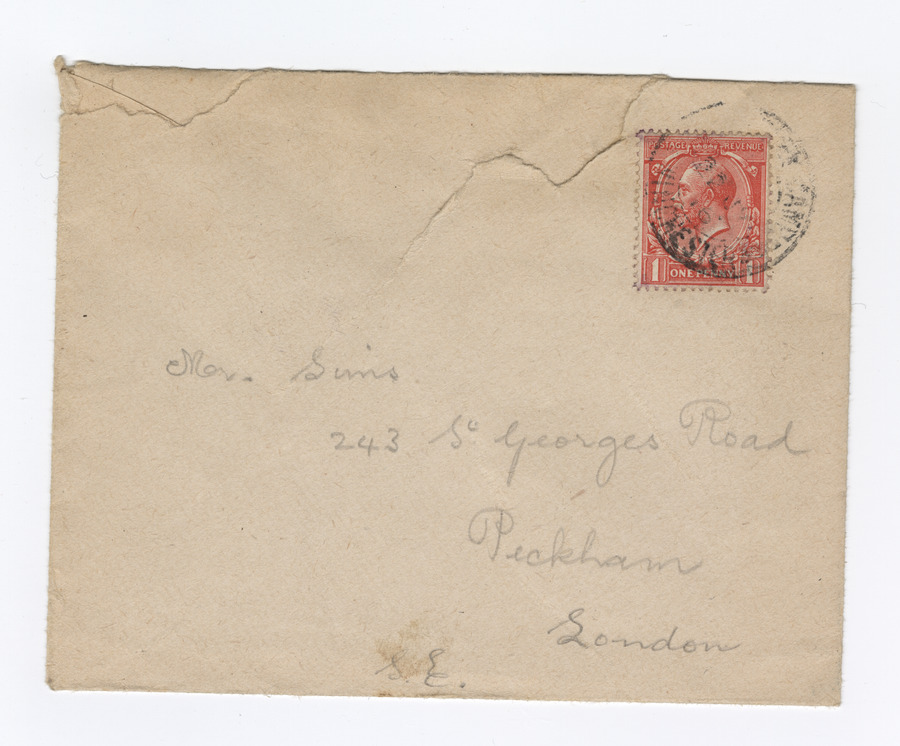 POSTAGE REVENUE
1 ONE PENNY 1
Mr. Sims.
243 St Georges Road
Peckham
London
S.E.